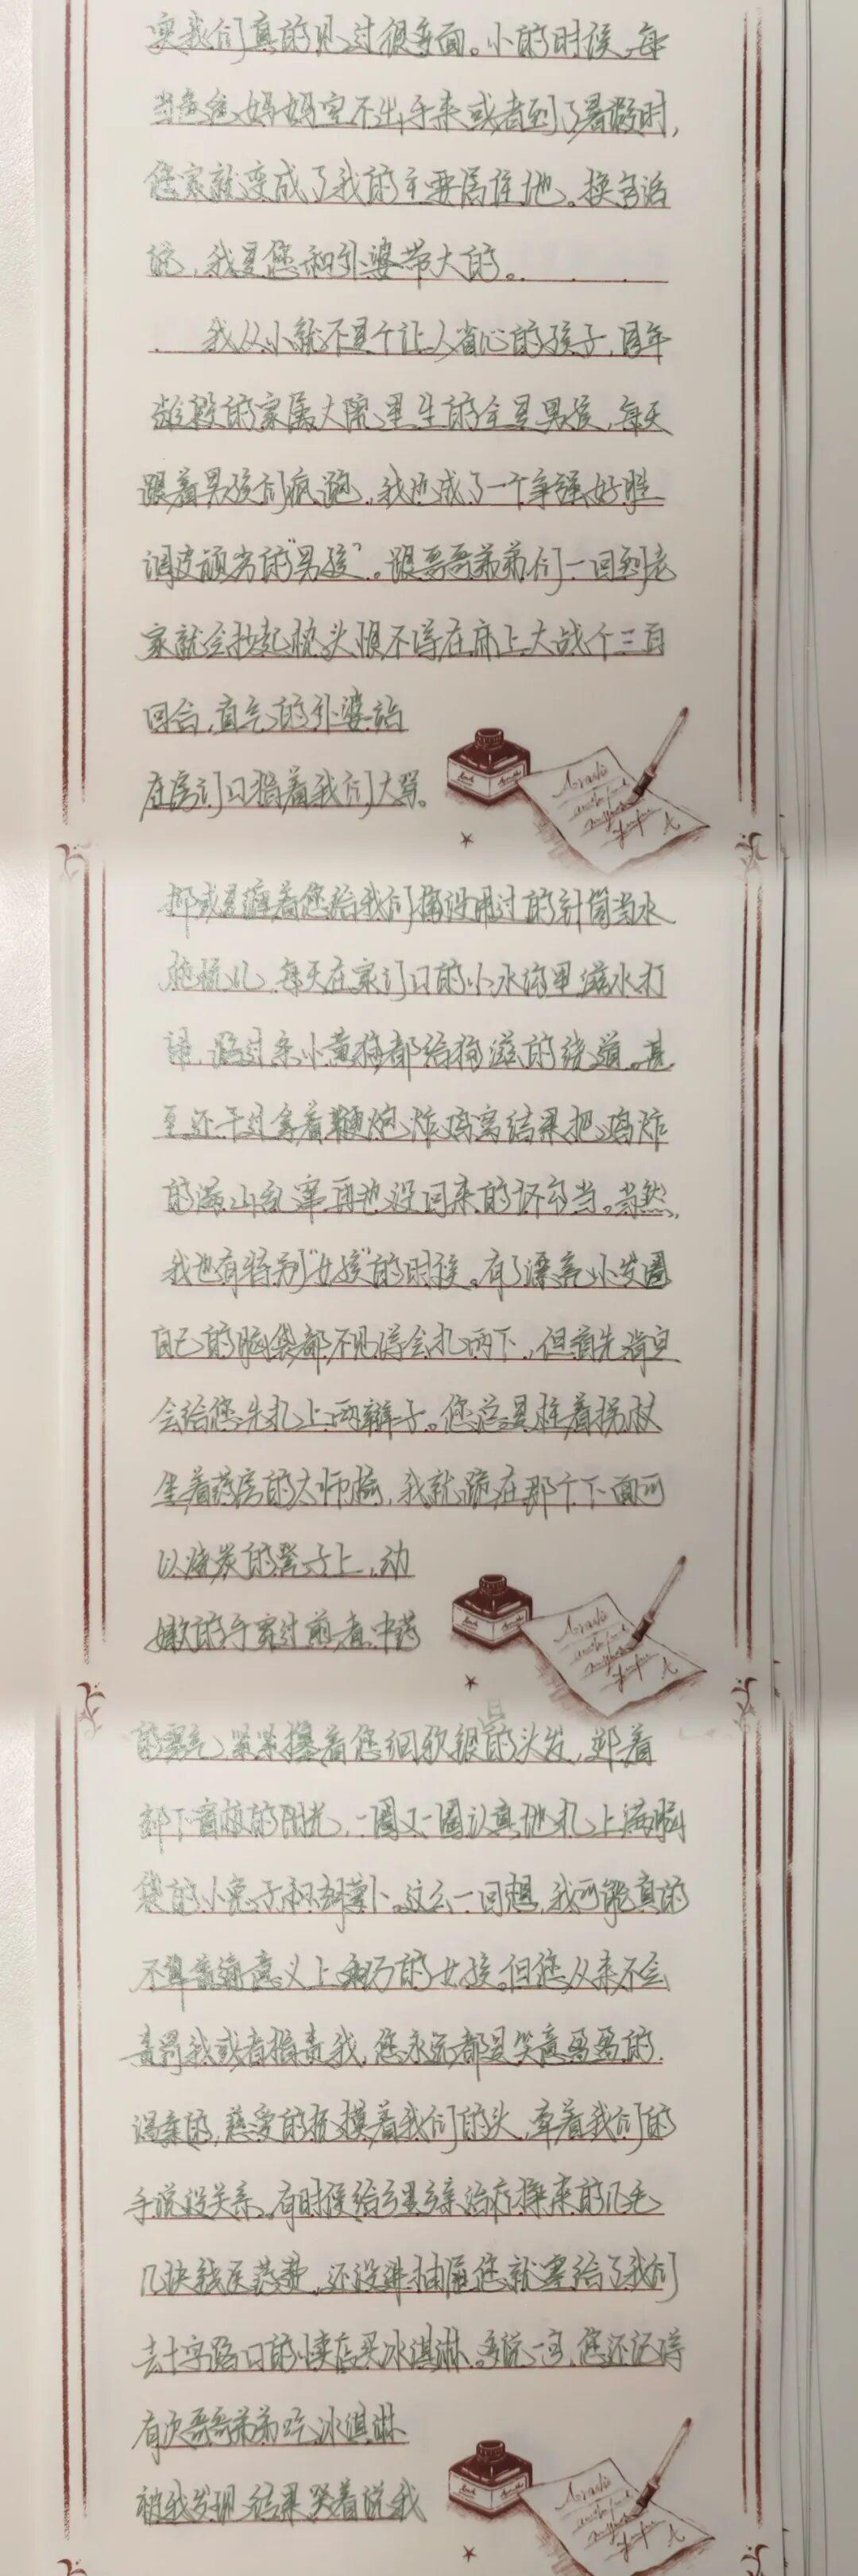 实我们真的见过很多面。小的时候，每
当爸爸妈妈空不出手来或者到了暑假时，
您家就变成了我的主要居住地。换句话
说，我是您和外婆带大的。
我从小就不是个让人省心的孩子，同年
龄段的家属大院里生的全是男孩，每天
跟着男孩们疯跑，我也成了一个争强好胜
调皮顽劣的“男孩”。跟哥哥弟弟们一回到老
家就会抄起枕头恨不得在床上大战个三百
回合，直气的外婆站
在房门口指着我们大骂。
抑或是缠着您给我们搞没用过的针筒当水
枪玩儿，每天在家门口的小水沟里滋水打
路过条小黄狗都给狗滋的绕道。甚
至还干过拿着鞭炮炸鸡窝结果把鸡炸
的满山乱窜再也没回来的坏勾当。当然，
我也有特别“女孩”的时候。有了漂亮小发圈
自己的脑袋都不见得会扎两下，但首先肯定
会给您先扎上两辫子。您总是拄着拐杖
坐着药房的太师椅，我就跪在那个下面可
以烧炭的凳子上，幼
嫩的手穿过煎煮中药
的雾气，紧紧攥着您细软银的头发，迎着
部下窗棂的阳光，一圈又一圈认真地扎上满脑
袋的小兔子和胡萝卜。这么一回想，我可能真的
不算普通意义上的女孩。但您从来不会
责骂我或者指责我，您永远都是笑意盈盈的，
温柔的，慈爱的抚摸着我们的头，牵着我们的
手说没关系。有时候给乡里乡亲治疗换来的几毛
几块钱医药费，还没进抽屉您就塞给了我们
去十字路口的小卖店买冰淇淋。多说一句，您还记得
有次哥哥弟弟吃冰淇淋
被我发现，结果哭着说我